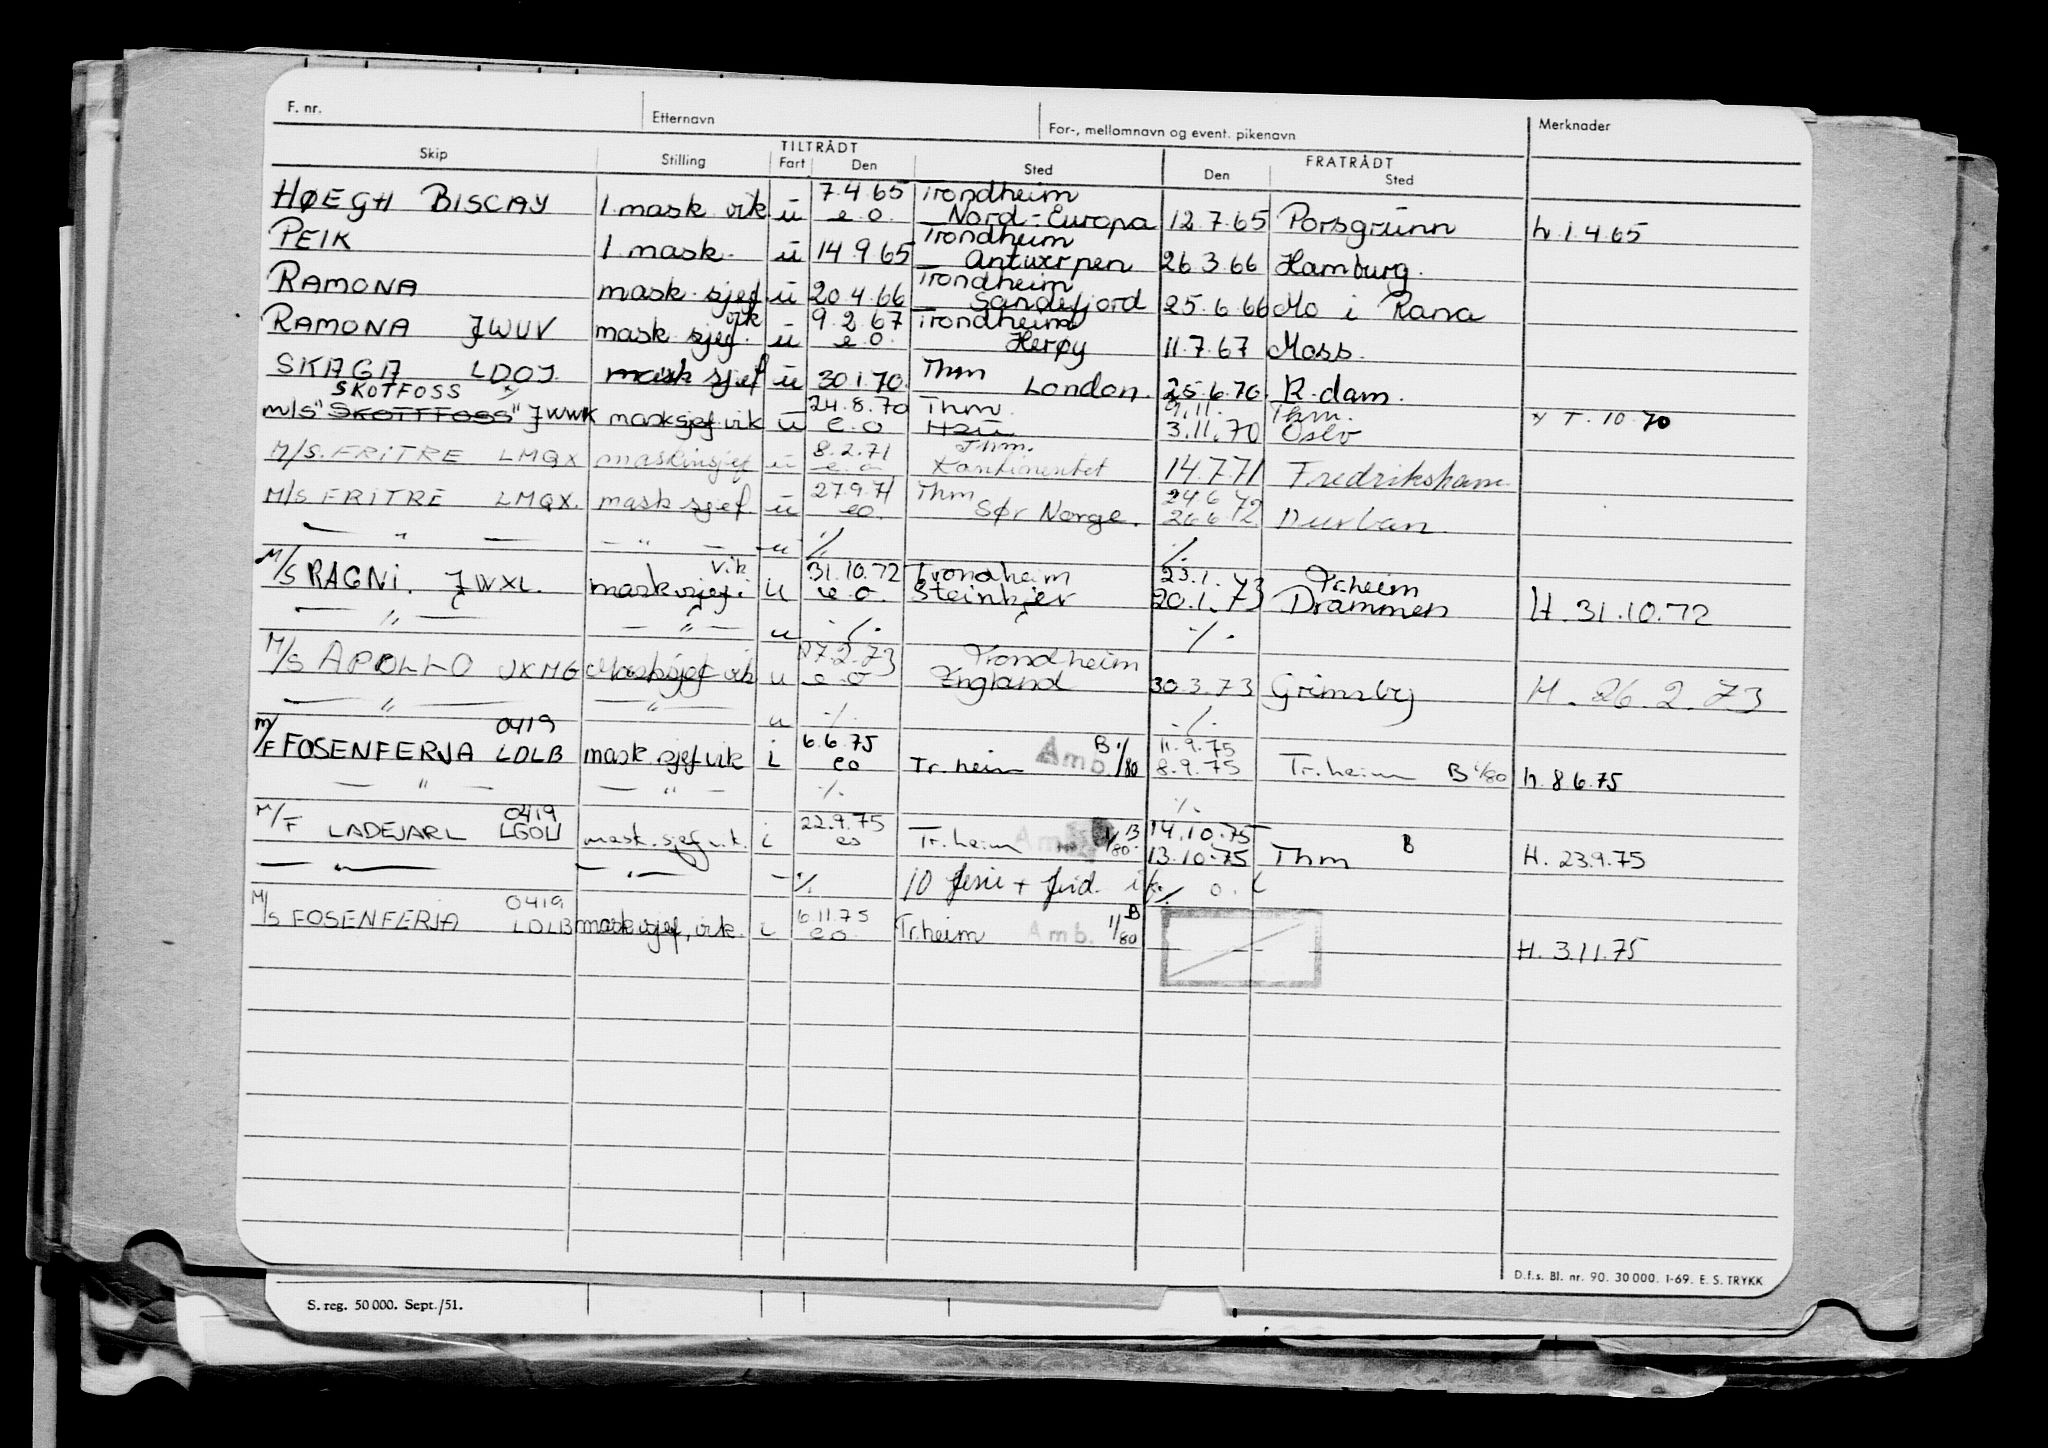 F. nr. Etternavn For-, mellomnavn og event. pikenavn Merknader
TILTRÅDT FRATRÅDT
Skip Stilling Fart Den Sted Den Sted
7.4.65 Trondheim
HØEGH BISCAY 1 mask vik u e.o. Nord-Europa 12.7.65 Porsgrunn h. 1.4.65
Trondheim
PEIK 1 mask. u 14.9.65 Antwerpen 26.3.66 Hamburg.
Trondheim
RAMONA mask. sjef u 20.4.66 Sandefjord 25.6.66 Mo i Rana
vik 9.2.67 Trondheim
RAMONA JWUV mask sjef. u e.o. Herøy 11.7.67 Moss.
SKAGA LDOJ. mask sjef u 30.1.70. Thm London. 25.6.70. R.dam.
SKOTFOSS x 24.8.70 Thm. 9.11. Thm.
m/s "SKOTTFOSS" JWWK masksjef vik u e.o 3.11.70 Oslo x T.10.70
8.2.71 Thm.
M/S. FRITRE LMQX maskinsjef u e.o Kontinentet 14.7.71 Fredrikshamn
27.9.71 Thm 24.6.72
M/S FRITRE LMQX. mask sjef. u eo. Sør Norge. 26.6.72 Durban.
— " — — " — u % %
vik 31.10.72 Trondheim 23.1.73 Tr.heim
M/S RAGNI. JWXL. mask sjef. u e.o. Steinkjer 20.1.73 Drammen H. 31.10.72
— " — — " — u % %
27.2.73 Trondheim
M/S APOLLO JXMG Masksjef vik u e o England 30.3.73 Grimsby H. 26.2.73
— " — — " — u % %
0419 6.6.75 B 1/80 11.9.75
M/F FOSENFERJA LDLB mask. sjef vik i eo Tr.heim Amb. 8.9.75 Tr.heim B 1/80 h. 8.6.75
— " — — " — % %
0419 22.9.75 B 14.10.75
M/F LADEJARL LGOU mask. sjef vik. i eo Tr.heim Amb. 1/80 13.10.75 Thm B H. 23.9.75
— " — — " — - % 10 ferie + frid. %
0419 6.11.75 B
M/S FOSENFERJA LDLB mask sjef, vik. i eo Tr.heim Amb. 1/80 H. 3.11.75
D.f.s. Bl. nr. 90. 30 000. 1-69. E. S. TRYKK
S. reg. 50 000. Sept./51.